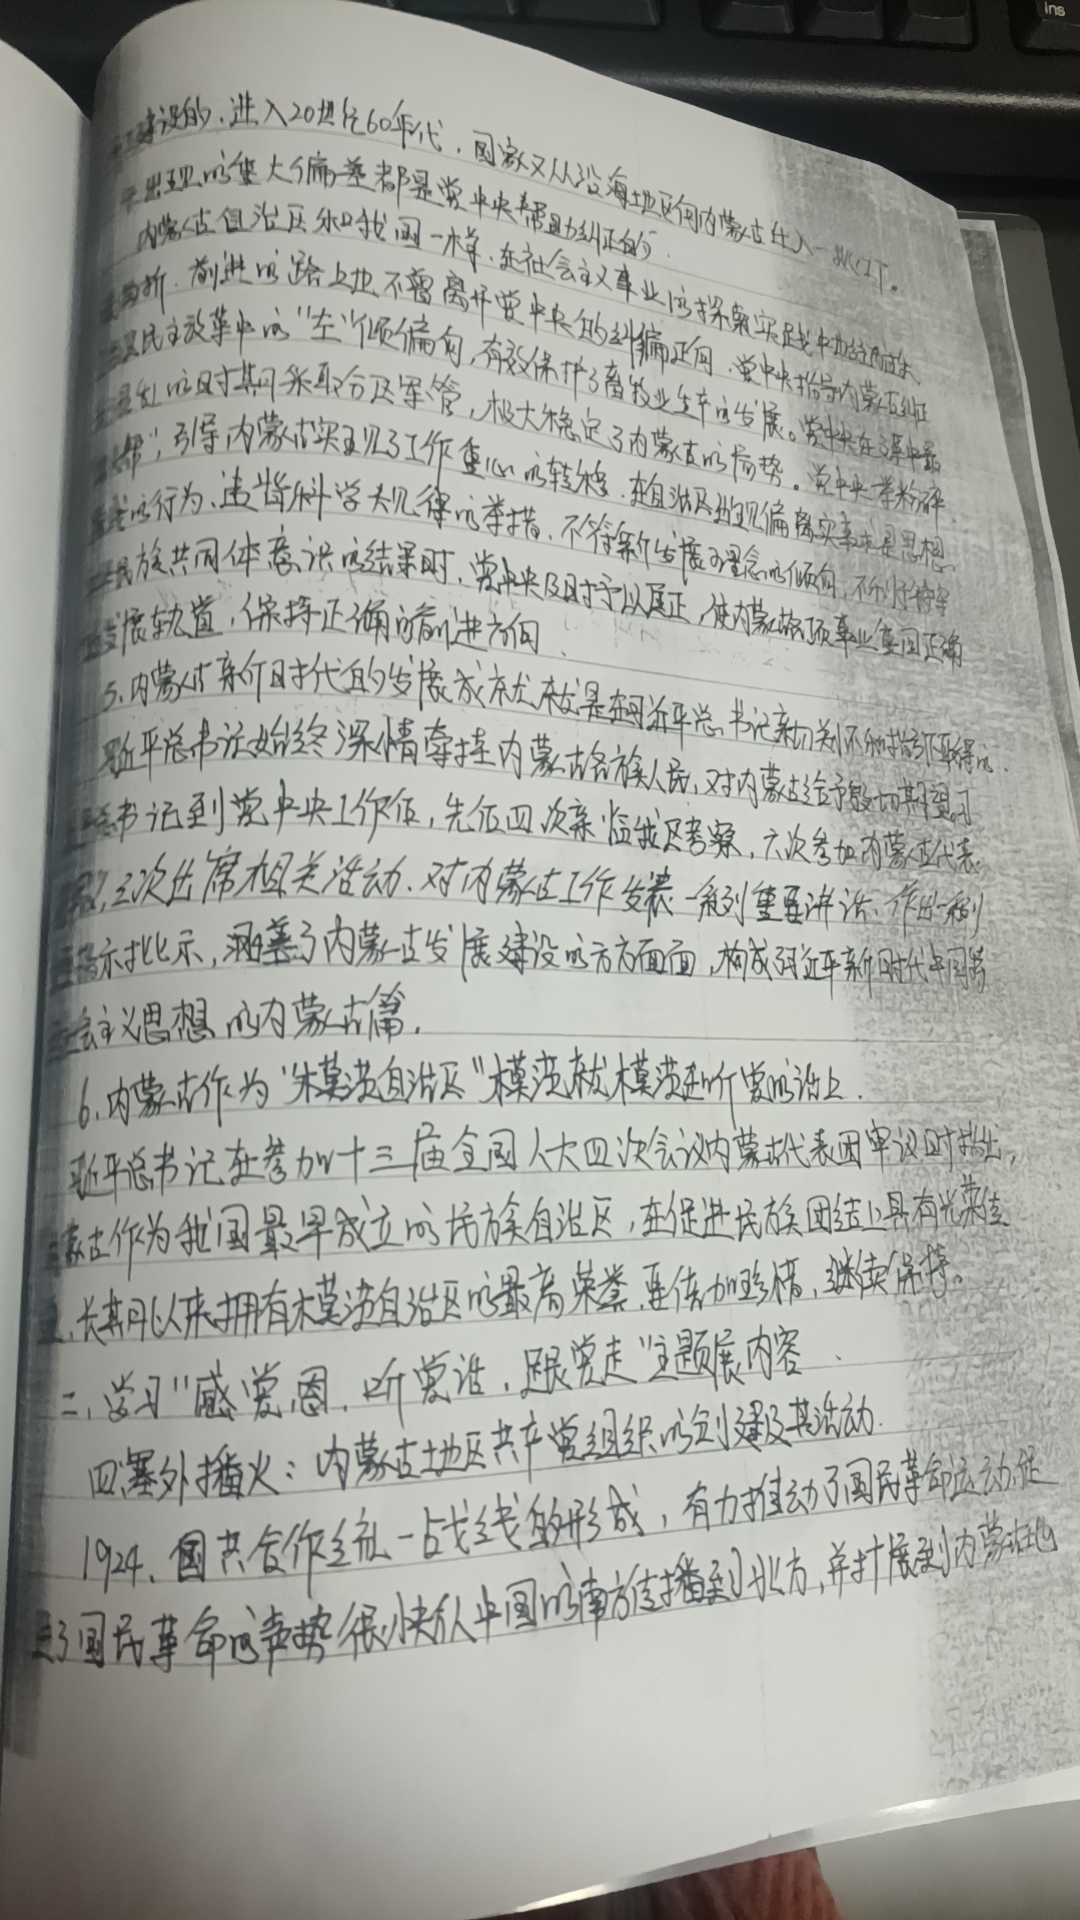 建设的.进入20世纪60年代,国家又从沿海地区向内蒙古迁入一批工厂。
出现的偏差都是党中央帮助纠正的.
内蒙古自治区和我国一样,在社会主义事业的探索实践中
曲折.前进的路上也不曾离开党中央的纠偏正向.党中央指导内蒙古纠正
民主改革中的"左"倾偏向,有效保护了畜牧业生产的发展。党中央在
乱的时期采取分区军管,极大稳定了内蒙古的局势。党中央一举粉碎
帮",引导内蒙古实现了工作重心的转移.在自治区出现偏离实事求是思想
的行为、违背科学规律的举措、不符新发展理念的倾向,不利于
民族共同体意识的结果时,党中央及时予以匡正,使内蒙古各项事业重回正确
发展轨道,保持正确的前进方向.
5.内蒙古新时代的发展成就就是在习近平总书记亲切关怀和指引下取得的.
习近平总书记始终深情牵挂内蒙古各族人民,对内蒙古给予殷切期望.习
总书记到党中央工作后,先后四次亲临我区考察,六次参加内蒙古代表
次出席相关活动.对内蒙古工作发表一系列重要讲话、作出一系列
指示批示,涵盖了内蒙古发展建设的方方面面,构成习近平新时代中国特
社会主义思想的内蒙古篇.
6.内蒙古作为"模范自治区"模范就模范在听党的话上.
习近平总书记在参加十三届全国人大四次会议内蒙古代表团审议时指出,
蒙古作为我国最早成立的民族自治区,在促进民族团结上具有光荣传
.长期以来拥有模范自治区的最高荣誉.要倍加珍惜,继续保持。
二.学习"感党恩,听党话,跟党走"主题展内容.
四塞外播火:内蒙古地区共产党组织的创建及其活动.
1924.国共合作统一战线的形成,有力推动了国民革命运动促
了国民革命的声势很快从中国的南方传播到北方,并扩展到内蒙古地